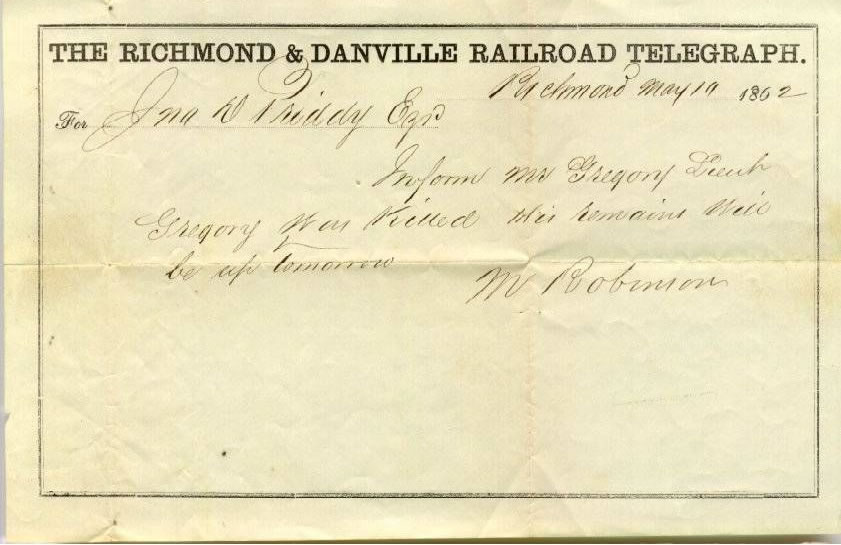 THE RICHMOND & DANVILLE RAILROAD TELEGRAPH.
Richmond May 19 1862
For Jno D Priddy Esqr
Inform Mr Gregory Lieut
Gregory Was Killed His remains Will
be up tomorrow
M Robinson